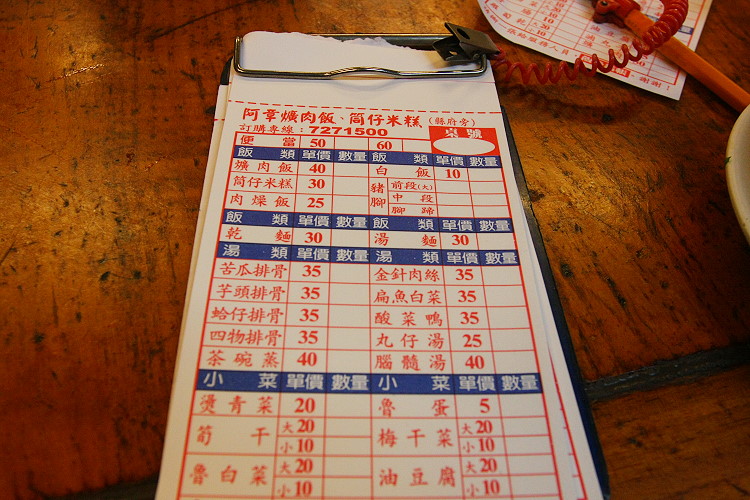 阿章爌肉飯、筒仔米糕(縣府旁)
訂購專線：7271500
桌號
便當 50 60
飯類 單價 數量 飯類 單價 數量
爌肉飯 40 白飯 10
筒仔米糕 30 豬腳 前段(大)
肉燥飯 25 中段
腳蹄
飯類 單價 數量 飯類 單價 數量
乾麵 30 湯麵 30
湯類 單價 數量 湯類 單價 數量
苦瓜排骨 35 金針肉絲 35
芋頭排骨 35 扁魚白菜 35
蛤仔排骨 35 酸菜鴨 35
四物排骨 35 丸仔湯 25
茶碗蒸 40 腦髓湯 40
小菜 單價 數量 小菜 單價 數量
燙青菜 20 魯蛋 5
筍干 大20 小10 梅干菜 大20 小10
魯白菜 大20 小10 油豆腐 大20 小10